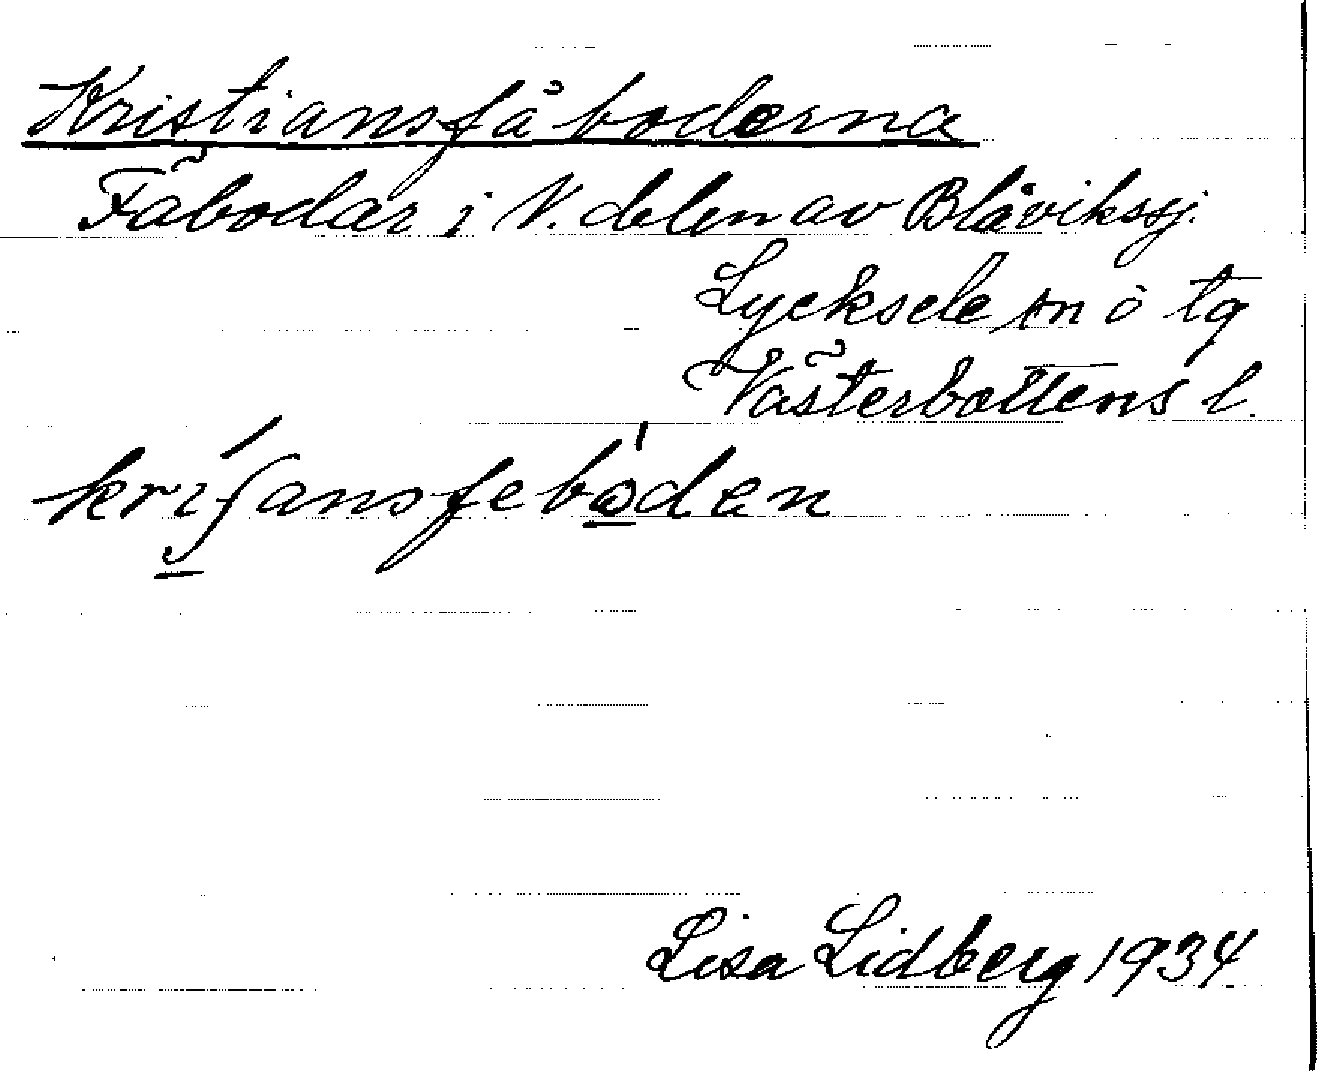 Kristiansfåboderna
Fäbodar i V. delen av Blåvikssj.
Lycksele sn o tg
Västerbottens l.
kriʃansfebodan
Lisa Lidberg 1934